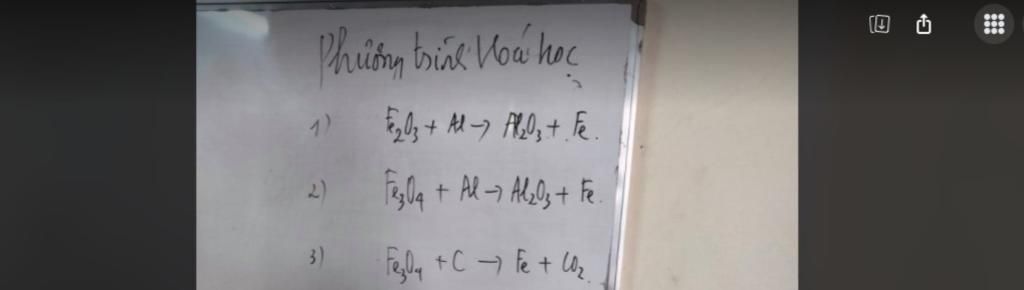 Phương trình Hoá học
1) Fe₂O₃ + Al → Al₂O₃ + Fe.
2) Fe₃O₄ + Al → Al₂O₃ + Fe.
3) Fe₃O₄ + C → Fe + CO₂.